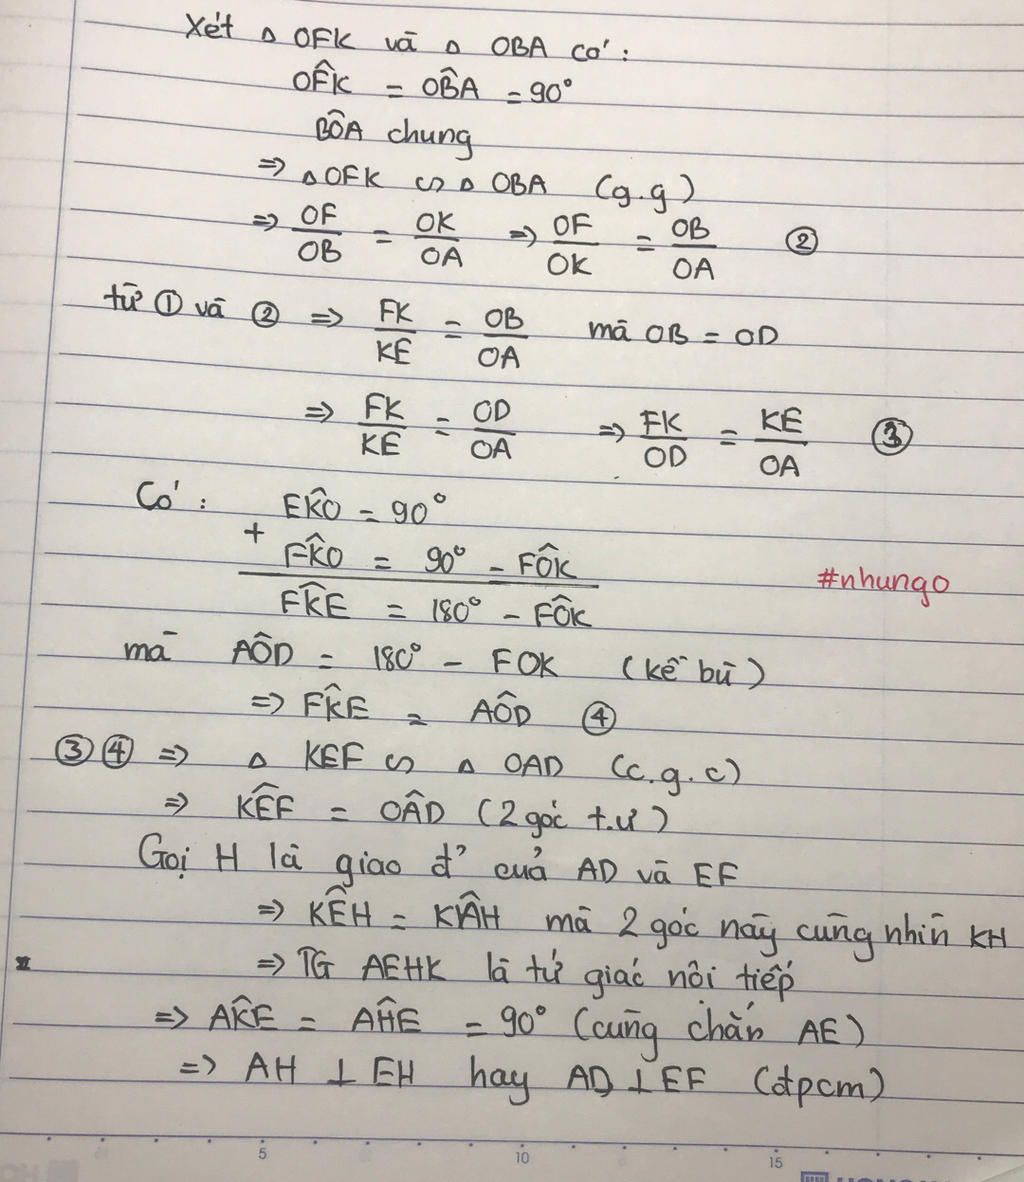 Xét △ OFK và △ OBA có:
OF̂K = OB̂A = 90°
BÔA chung
=> △OFK ∽ △ OBA (g.g)
=> OF/OB = OK/OA => OF/OK = OB/OA ②
từ ① và ② => FK/KE = OB/OA mà OB = OD
=> FK/KE = OD/OA => FK/OD = KE/OA ③
Có: EK̂O = 90°
+
FK̂O = 90° - FÔK
#nhungo
FK̂E = 180° - FÔK
mà AÔD = 180° - FOK (kề bù)
=> FK̂E = AÔD ④
③④ => △ KEF ∽ △ OAD (c.g.c)
=> KÊF = OÂD (2 góc t.ư)
Gọi H là giao đ' cuả AD và EF
=> KÊH = KÂH mà 2 góc này cùng nhìn KH
=> TG AEHK là tứ giác nội tiếp
=> AK̂E = AĤE = 90° (cùng chắn AE)
=> AH ⊥ EH hay AD ⊥ EF (đpcm)
5 10 15